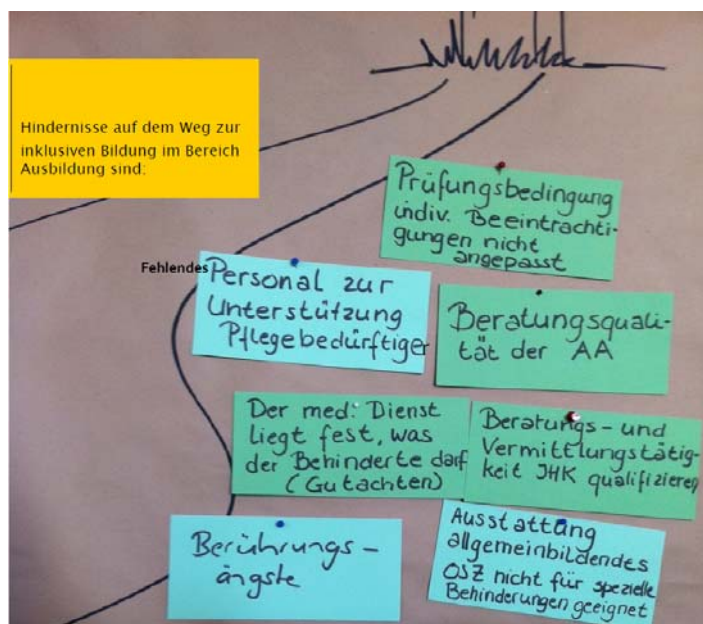 Hindernisse auf dem Weg zur
inklusiven Bildung im Bereich
Ausbildung sind:
Prüfungsbedingung
indiv. Beeinträchti-
gungen nicht
angepasst
Fehlendes
Personal zur
Unterstützung
Pflegebedürftiger
Beratungsquali-
tät der AA
Der med. Dienst
liegt fest, was
der Behinderte darf
(Gutachten)
Beratungs- und
Vermittlungstätig-
keit IHK qualifizieren
Berührungs-
ängste
Ausstattung
allgemeinbildendes
OSZ nicht für spezielle
Behinderungen geeignet